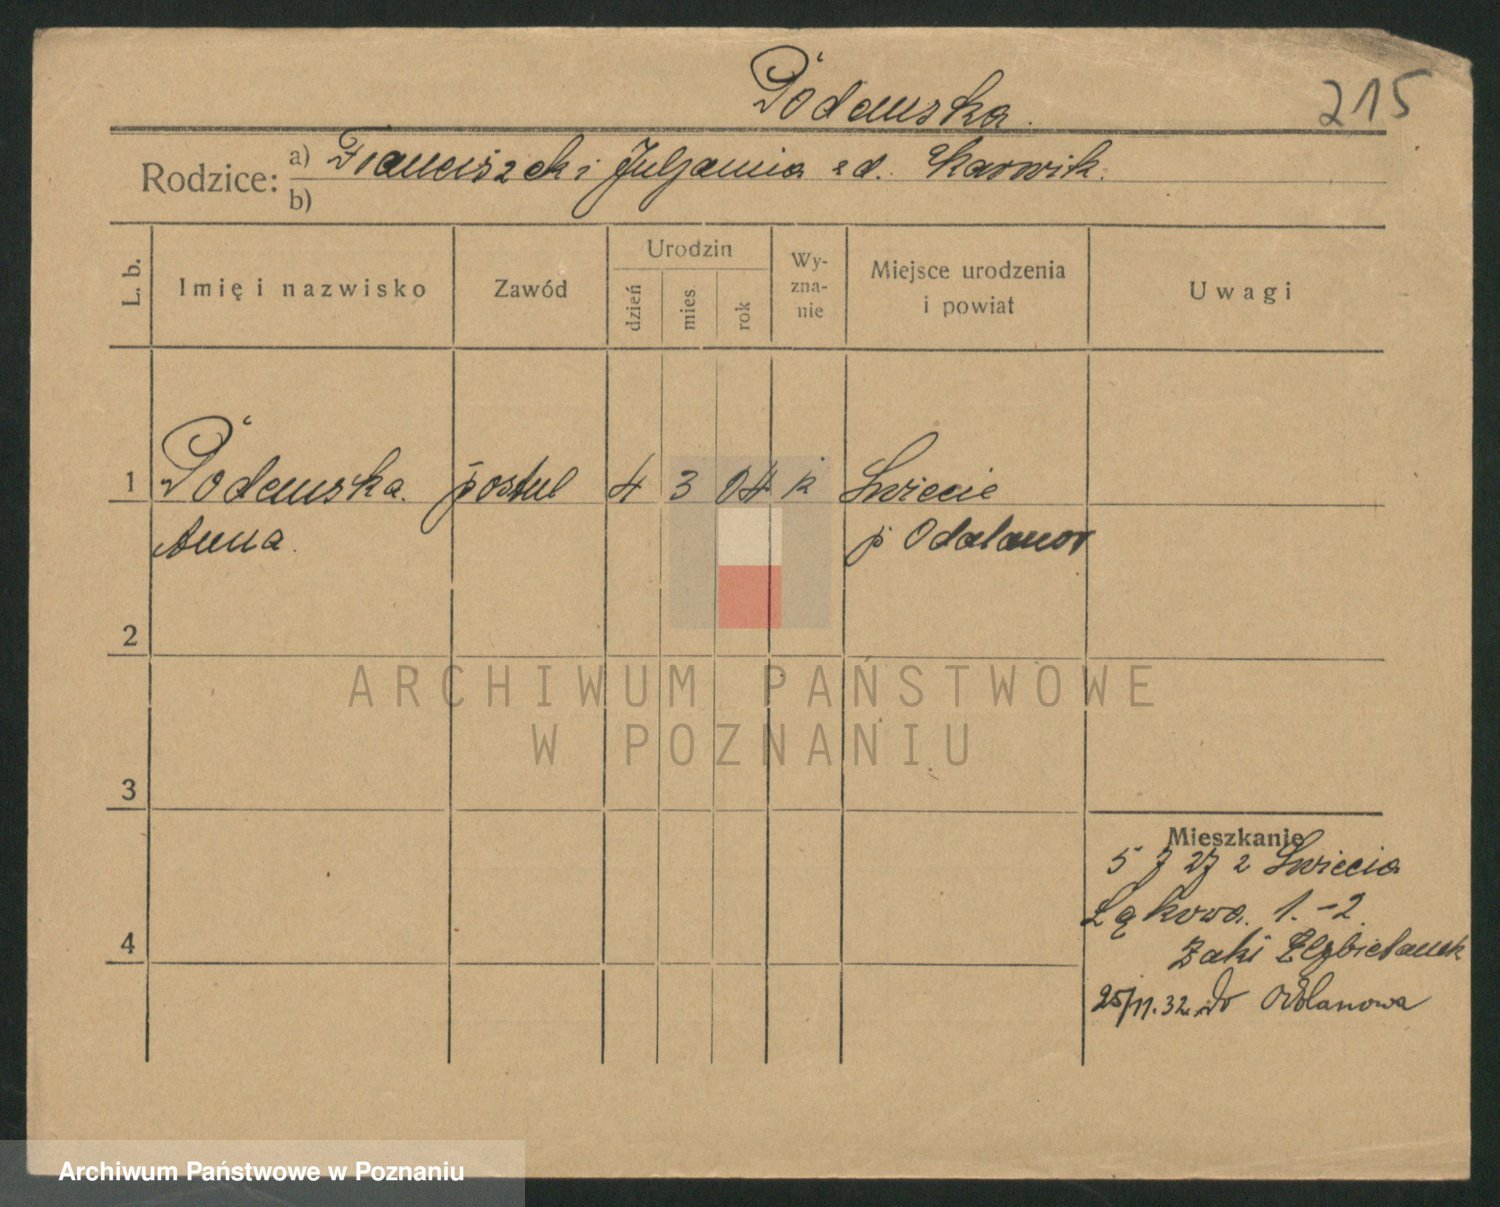 Podemska.
215
Rodzice:
a) Franciszek i Juljanna zd. Karwik.
b)
L. b.
Imię i nazwisko
Zawód
Urodzin
dzień
mies
rok
Wy-
zna-
nie
Miejsce urodzenia
i powiat
Uwagi
1 Podemska. postul 4 3 04 k Świecie
Anna. p Odalanow
2
3
4
Mieszkanie
5 7 27 z Świecia
Łąkowa. 1.-2.
Zakł Elżbietanek
25/11.32 do Odolanowa
ARCHIWUM PAŃSTWOWE
W POZNANIU
Archiwum Państwowe w Poznaniu